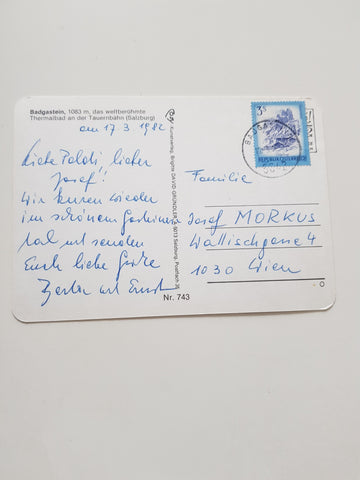 Badgastein, 1083 m, das weltberühmte
Thermalbad an der Tauernbahn (Salzburg)
am 17 3 1982
Liebe Poldi lieber
Josef!
Wir kuren wieder
im schönen Gasteiner
tal und senden
Euch liebe Grüße
und Ernst
Kunstverlag, Brigitte DAVID-GRÜNDLER, 5013 Salzburg, Postfach 36
Nr. 743
3 S
REPUBLIK ÖSTERREICH
Familie
Josef MORKUS
Wällischgasse 4
1030 Wien